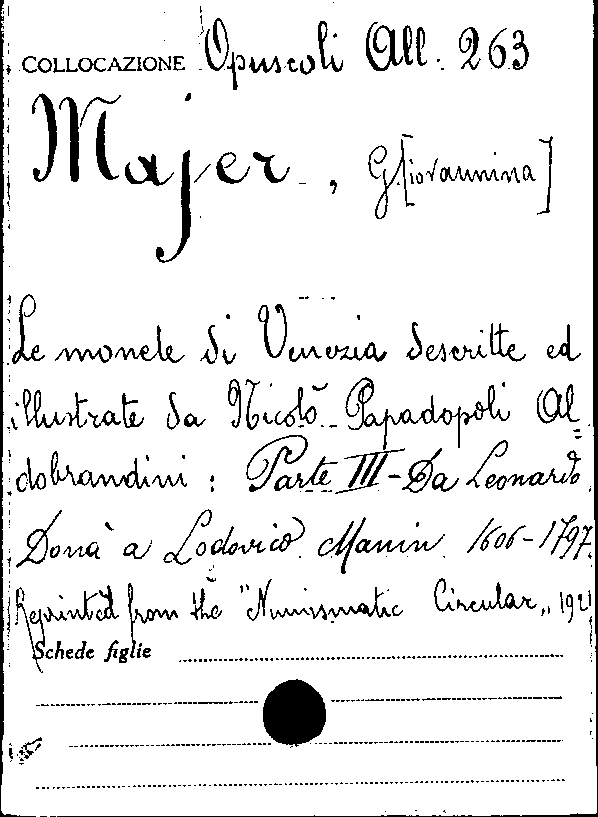 COLLOCAZIONE Opuscoli All. 263
Majer, G[iovannina]
Le monete di Venezia descritte ed
illustrate da Nicolò Papadopoli Al=
dobrandini: Parte III - Da Leonardo
Donà a Lodovico Manin 1606-1797.
Reprinted from the "Numismatic Circular„ 192
Schede figlie